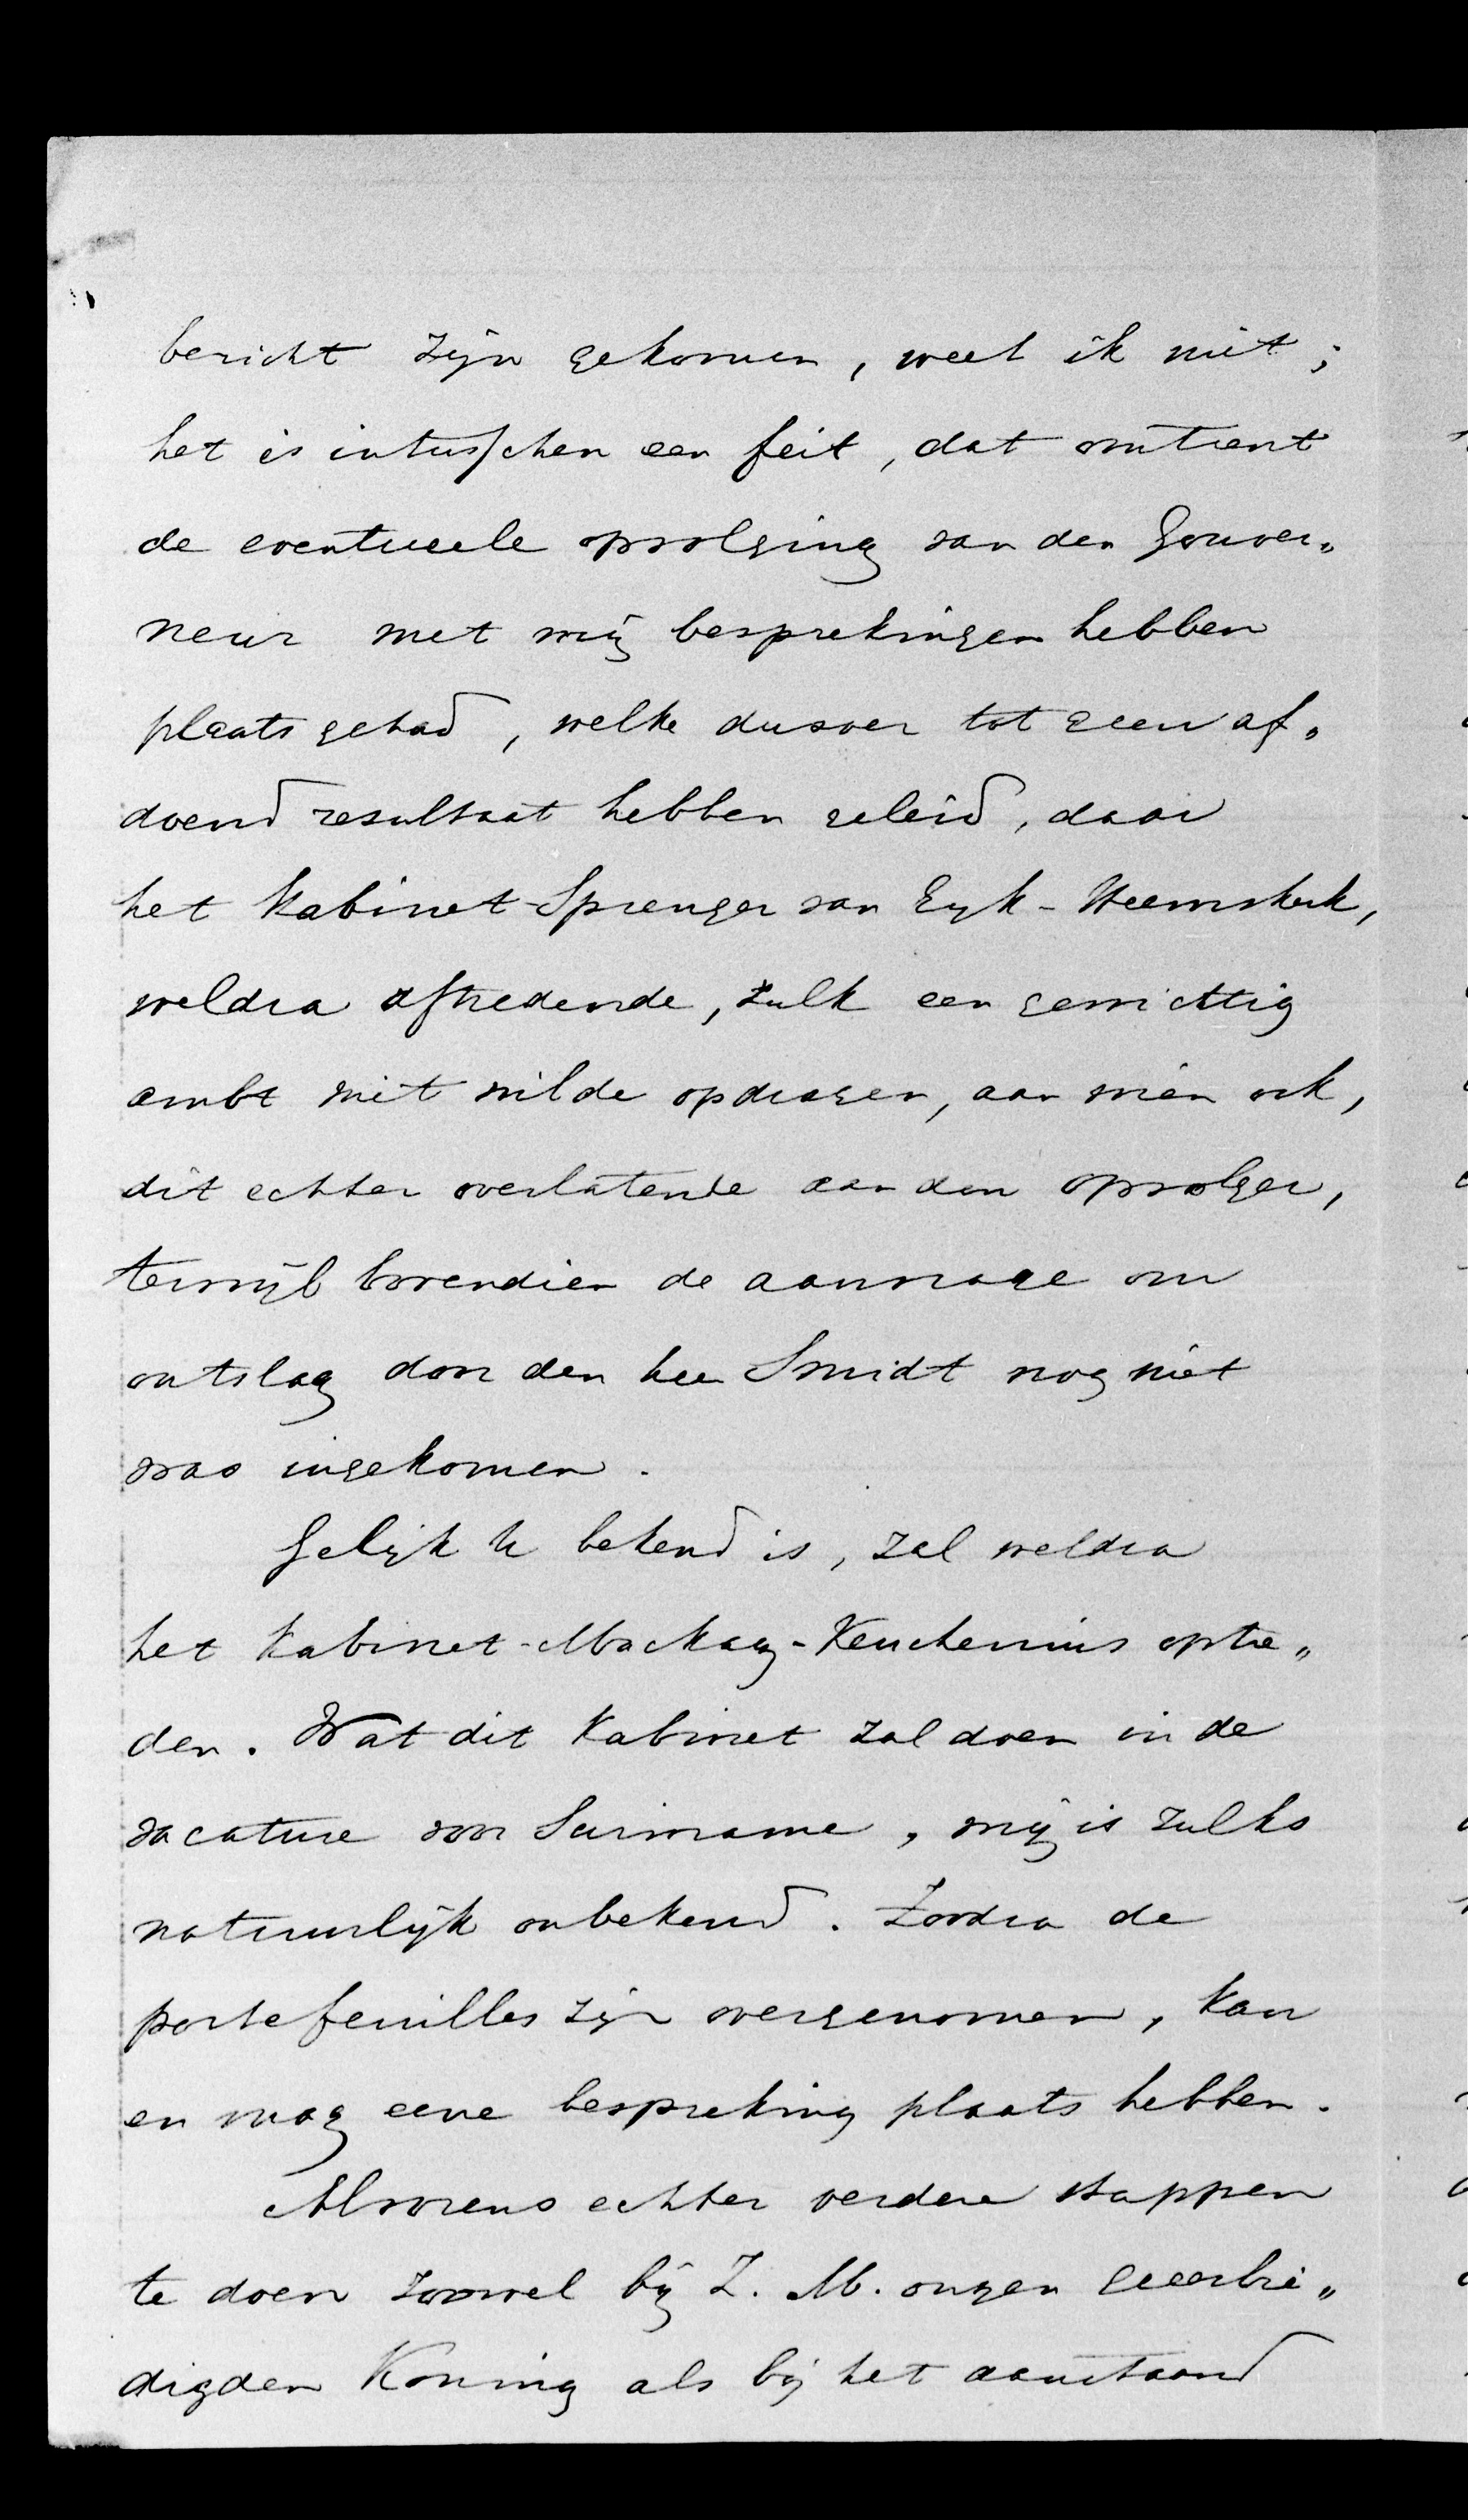 bericht zijn gekomen, weet ik niet;
het is intusschen een feit, dat omtrent
de eventueele opvolging van den Gouver„
neur met mij besprekingen hebben
plaats gehad, welke dusver tot geen af„
doend resultaat hebben geleid, daar
het Kabinet-Sprenger van Eyk-Heemskerk,
weldra aftredende, zulk een gewichtig
ambt niet wilde opdragen, aan wien ook,
dit echter overlatende aan den opvolger,
terwijl bovendien de aanvrage om
ontslag door den heer Smidt nog niet
was ingekomen.
Gelijk U bekend is, zal weldra
het Kabinet-Mackay-Keuchenius optre„
den. Wat dit Kabinet zal doen in de
vacature voor Suriname, mij is zulks
natuurlijk onbekend. Zoodra de
portefeuilles zijn overgenomen, kan
en mag eene bespreking plaats hebben.
Alvorens echter verdere stappen
te doen zoowel bij Z. M. onzen geeerbie„
digden Koning als bij het aanstaand